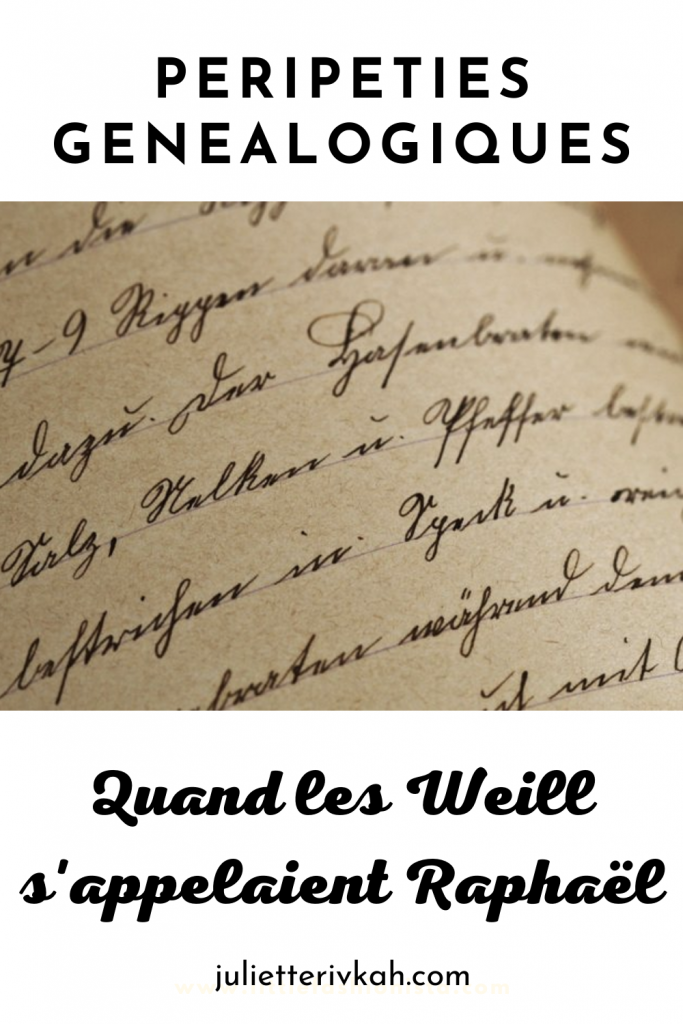 PERIPETIES
GENEALOGIQUES
n die
7-9 Rippen daran u.
dazu. Der Hasenbraten
Salz, Nelken u. Pfeffer best
bestrichen in Speck u.
braten während dem
mit
Quand les Weill
s'appelaient Raphaël
julietterivkah.com